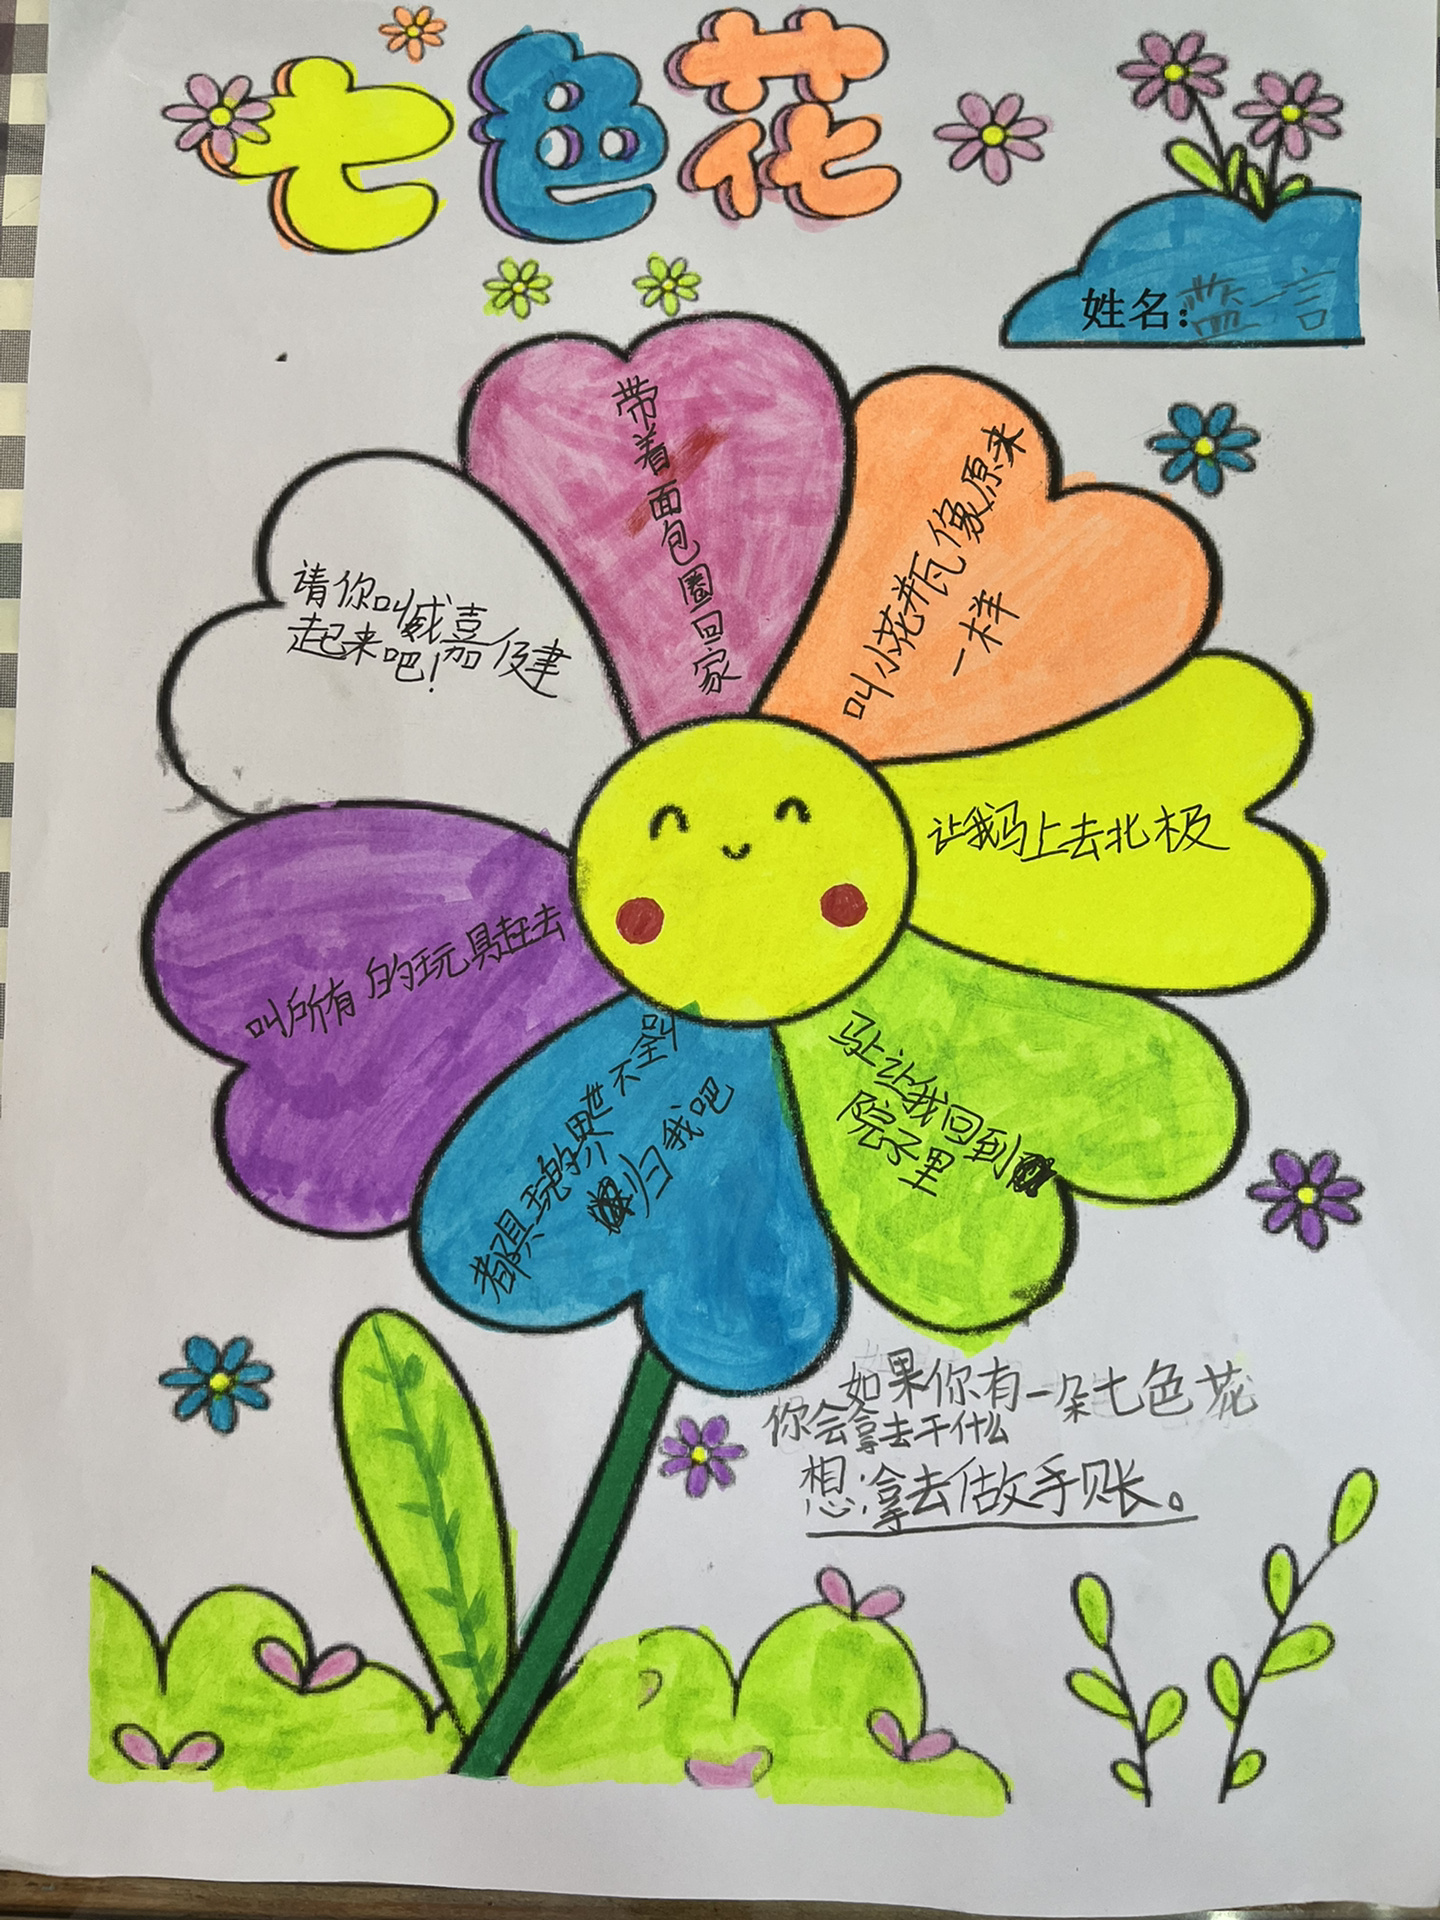 七色花
姓名：蓝一言
带着面包圈回家
叫小花瓶像原来
一样
让我马上去北极
马上让我回到
院子里
叫全不世界的玩具都
归我吧
叫所有的玩具赶去
请你叫威嘉健
起来吧！
如果你有一朵七色花
你会拿去干什么
想：拿去做手账。